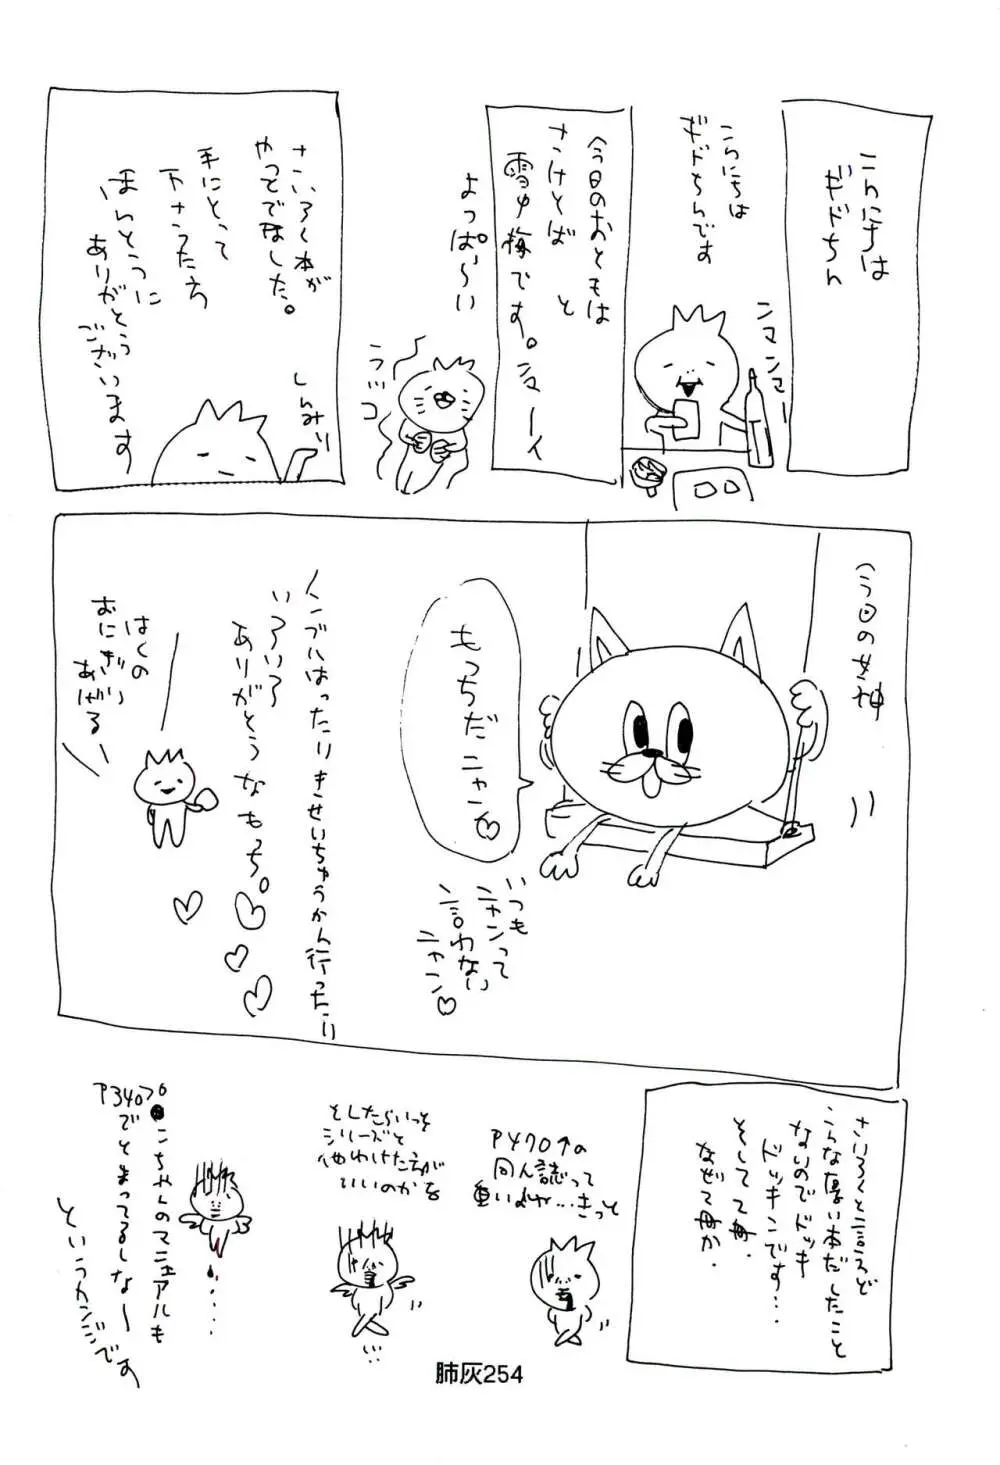 こんにちは
ギドちん
こんにちは
ギドちんです
ンマンマー
今日のおともは
さけとば と
雪中梅です。ンマーイ
よっぱらい
ウッコ
さいろく本が
やってでました。
手にとって
下さった方
ほんとうに
ありがとう
ございます
しんみり
今日の女神
もっちだニャン♡
いつも
ニャンって
言わない
ニャン♡
いろいろ
ありがとうなもっち。
はくの
おにぎり
あげる
さいろくと言えど
こんな厚い本だしたこと
ないのでドッキ
ドッキンです…
そして再。
なぜて再か。
P470↑の
同人誌って
重いよね…きっと
としたらいっそ
シリーズと
使わけた方が
いいのかな
P340プ
こちゃんのマニュアルも
でとまってるしな〜
というカンジです
肺灰254